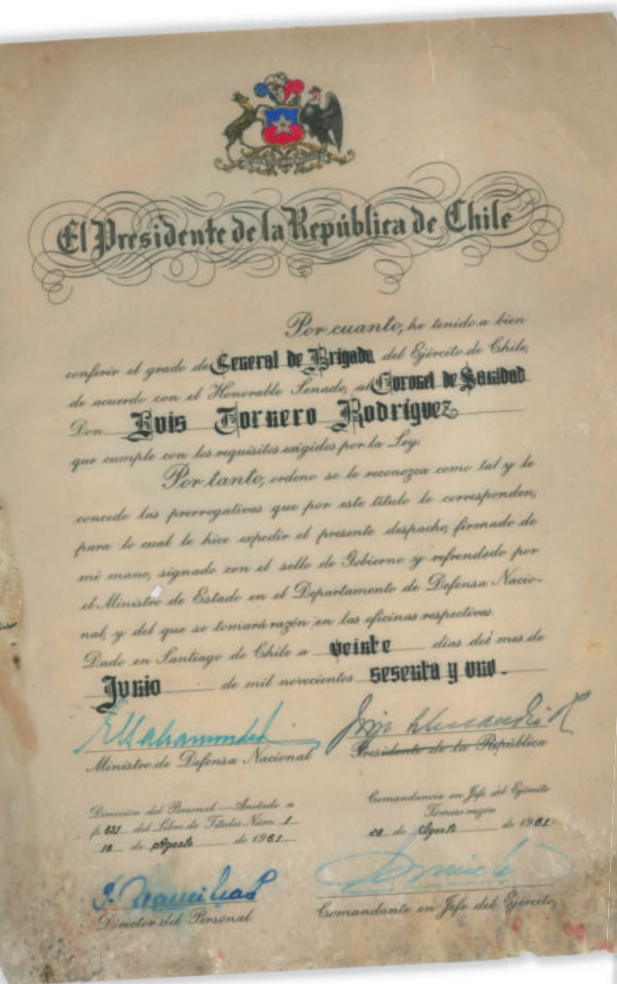 El Presidente de la República de Chile
Por cuanto, he tenido a bien
conferir el grado de General de Brigada del Ejército de Chile,
de acuerdo con el Honorable Senado, al Coronel de Sanidad
Don Luis Tornero Rodríguez
que cumple con los requisitos exigidos por la Ley.
Por tanto, ordeno se le reconozca como tal y le
concedo las prerrogativas que por este título le corresponden,
para lo cual le hice expedir el presente despacho, firmado de
mi mano, signado con el sello de Gobierno y refrendado por
el Ministro de Estado en el Departamento de Defensa Nacio-
nal, y del que se tomará razón en las oficinas respectivas.
Dado en Santiago de Chile a veinte días del mes de
Junio de mil novecientos sesenta y uno.-
Ministro de Defensa Nacional
Presidente de la República
Dirección del Personal — Anotado a
fs 831 del Libro de Títulos Núm. 1
18 de Agosto de 1961
Comandancia en Jefe del Ejército
Tómese razón
de Agosto de 1961
Director del Personal
Comandante en Jefe del Ejército